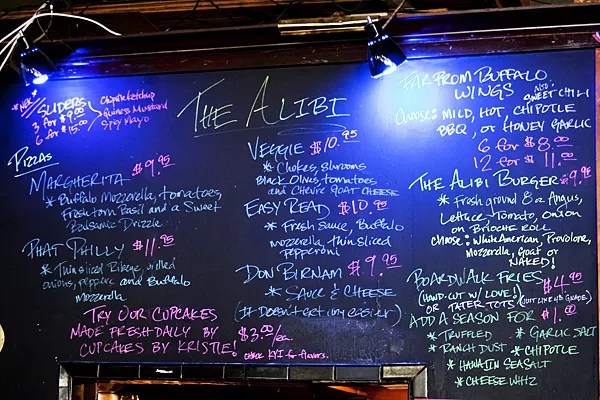 The Alibi
*NEW* SLIDERS
3 for $9.00
6 for $15.00
Chipotle Ketchup
Guiness Mustard
Spicy Mayo
Pizzas
MARGHERITA $9.95
* Buffalo Mozzerella, tomatoes,
Fresh torn Basil and a Sweet
Balsamic Drizzle
PHAT PHILLY $11.95
* Thin sliced Ribeye, grilled
onions, peppers and Buffalo
Mozzarella
TRY OUR CUPCAKES
MADE FRESH DAILY BY
CUPCAKES BY KRISTIE!
$3.00/ea.
check for flavors.
VEGGIE $10.95
* Chokes, shrooms,
Black Olives, tomatoes,
and CHEVRE GOAT CHEESE
EASY READ $10.95
* Fresh Sauce, Buffalo
mozzarella, thin sliced
pepperoni
DON BIRNAM $9.95
* SAUCE & CHEESE
(It Doesn't get any easier)
FAR FROM BUFFALO
WINGS ALSO SWEET CHILI
Choose: MILD, HOT, CHIPOTLE
BBQ, or HONEY GARLIC
6 for $8.00
12 for $11.00
THE ALIBI BURGER $9.95
* Fresh ground 8oz Angus,
Lettuce, Tomato, Onion
on BRIOCHE ROLL
choose: White American, Provolone,
Mozzarella, Goat or
NAKED!
BOARDWALK FRIES $4.95
(HAND-CUT w/ LOVE!)
OR TATER TOTS (JUST LIKE 4th GRADE)
ADD A SEASON FOR $1.00
* TRUFFLED * GARLIC SALT
* RANCH DUST * CHIPOTLE
* HAWAIIN SEA SALT
* CHEESE WHIZ